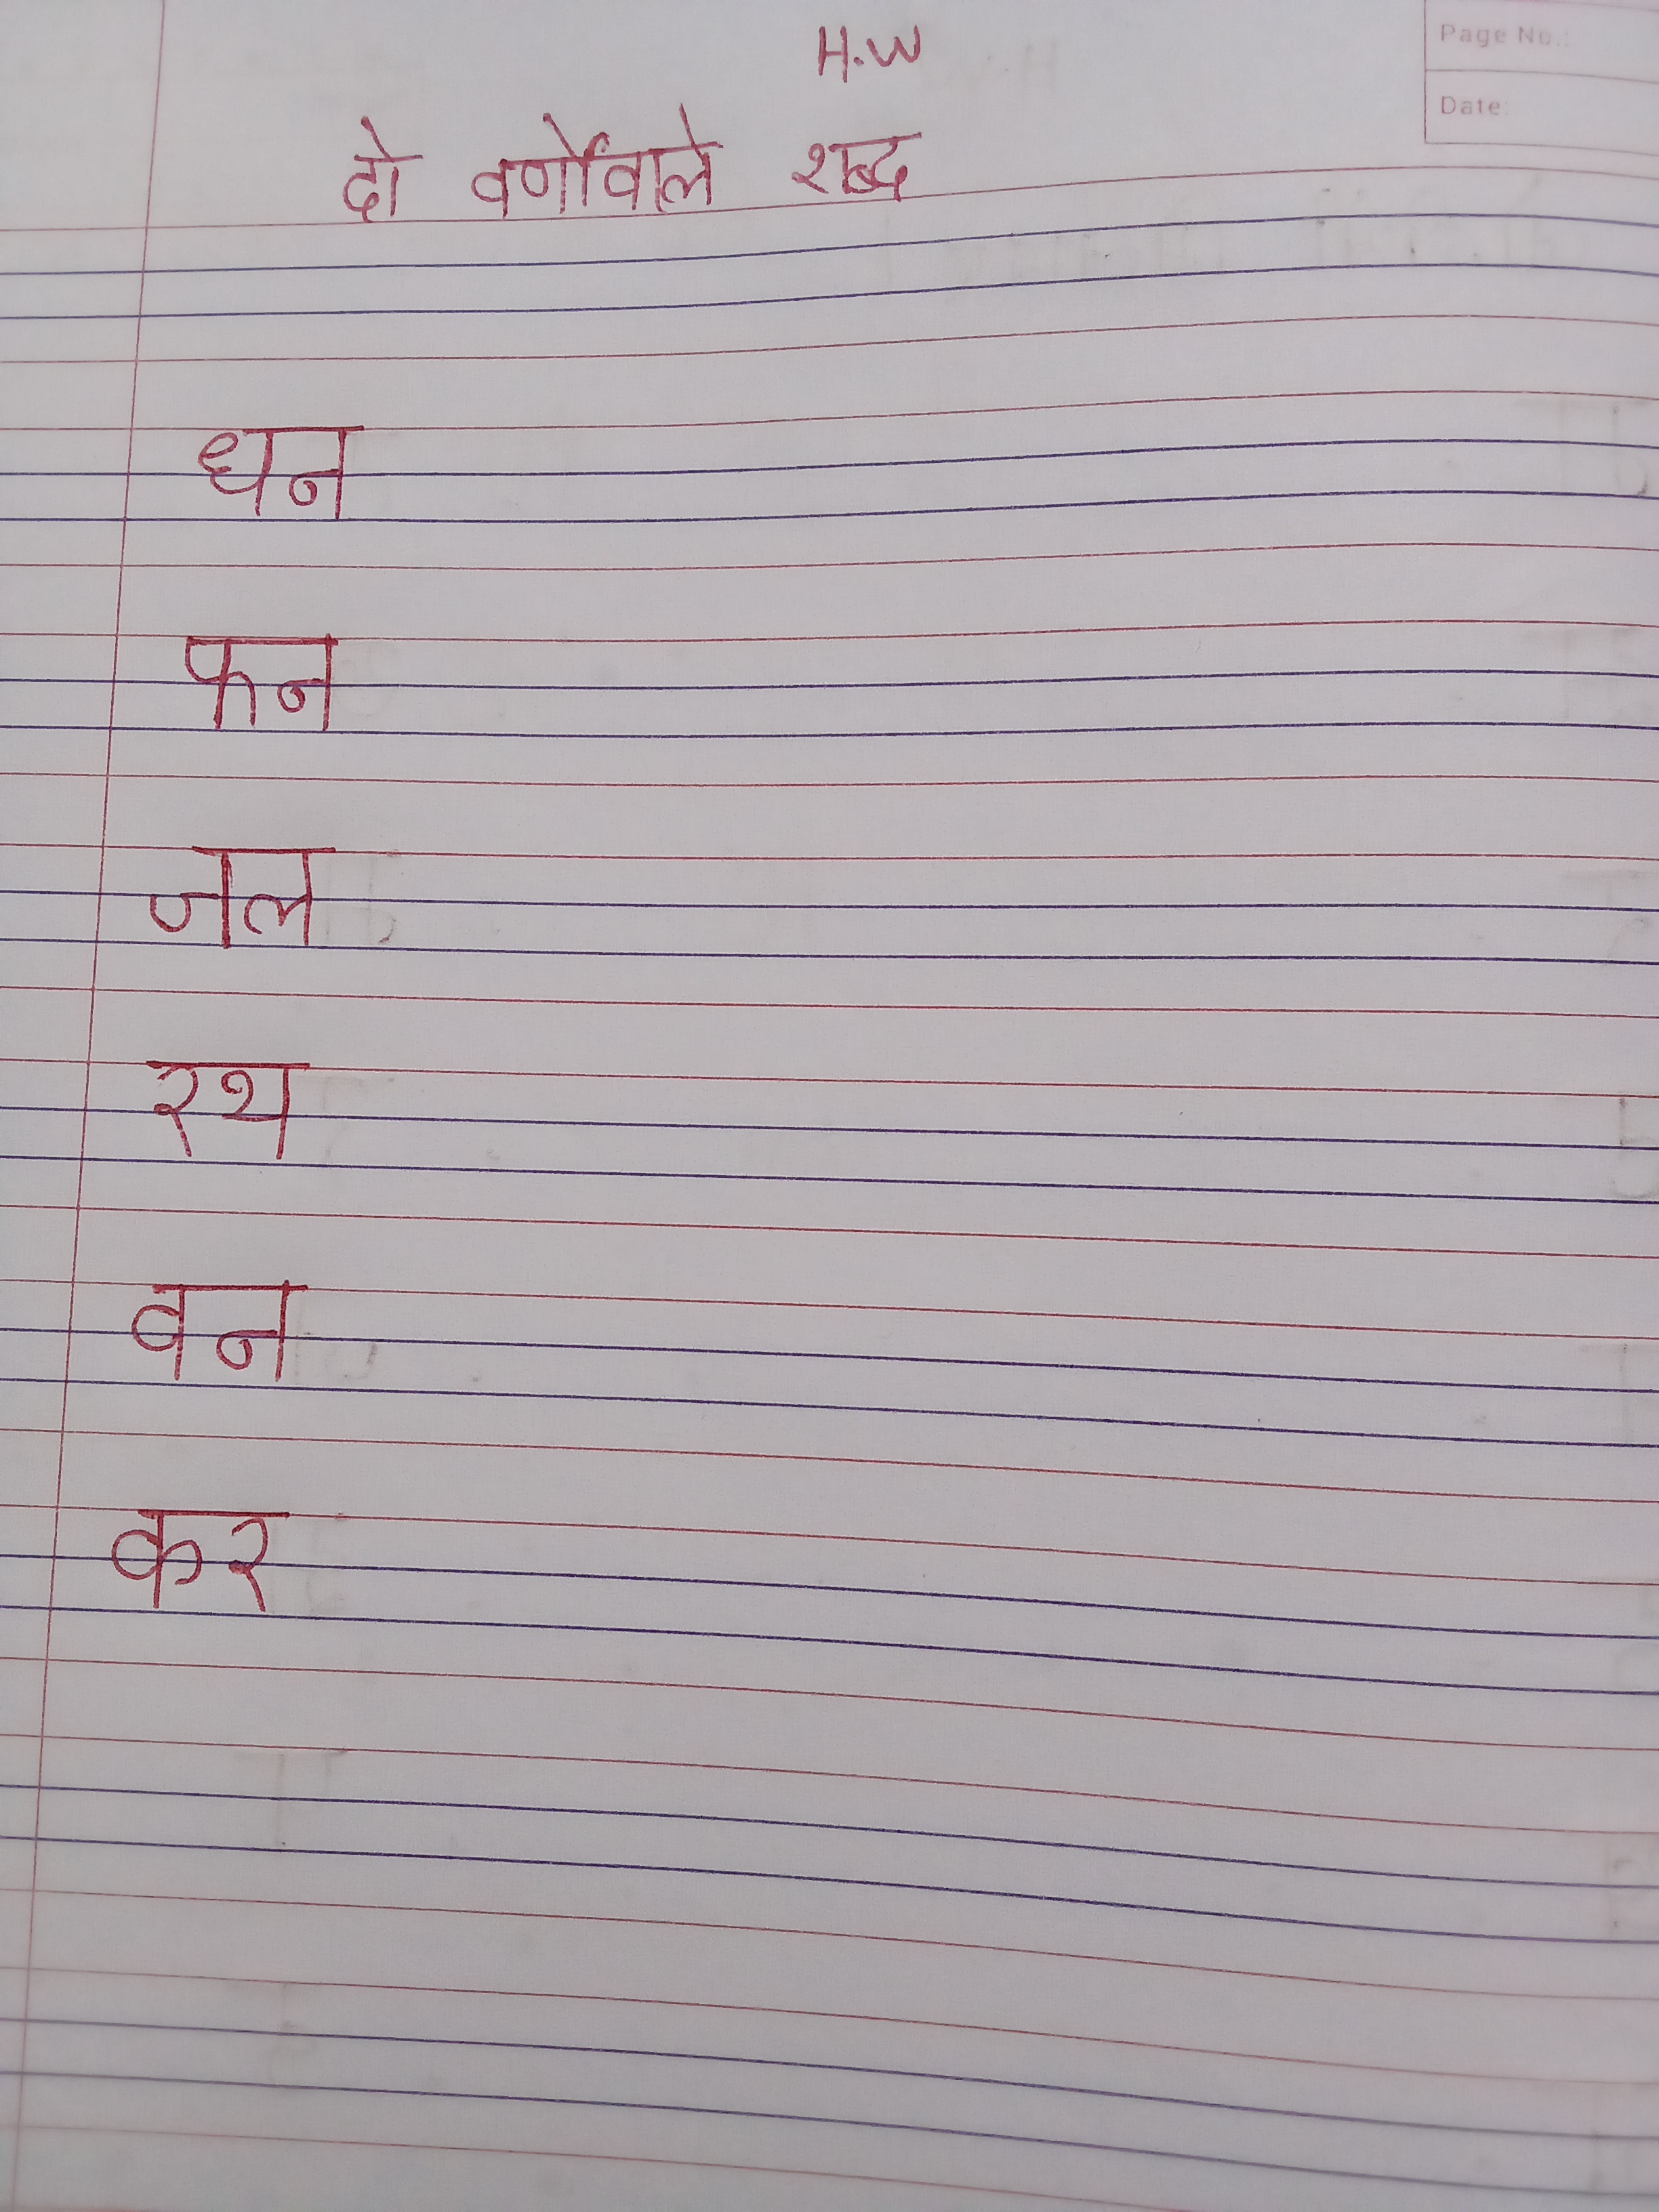 H.W
Page No.:
Date:
दो वर्णोंवाले शब्द
धन
फन
जल
रथ
वन
कर